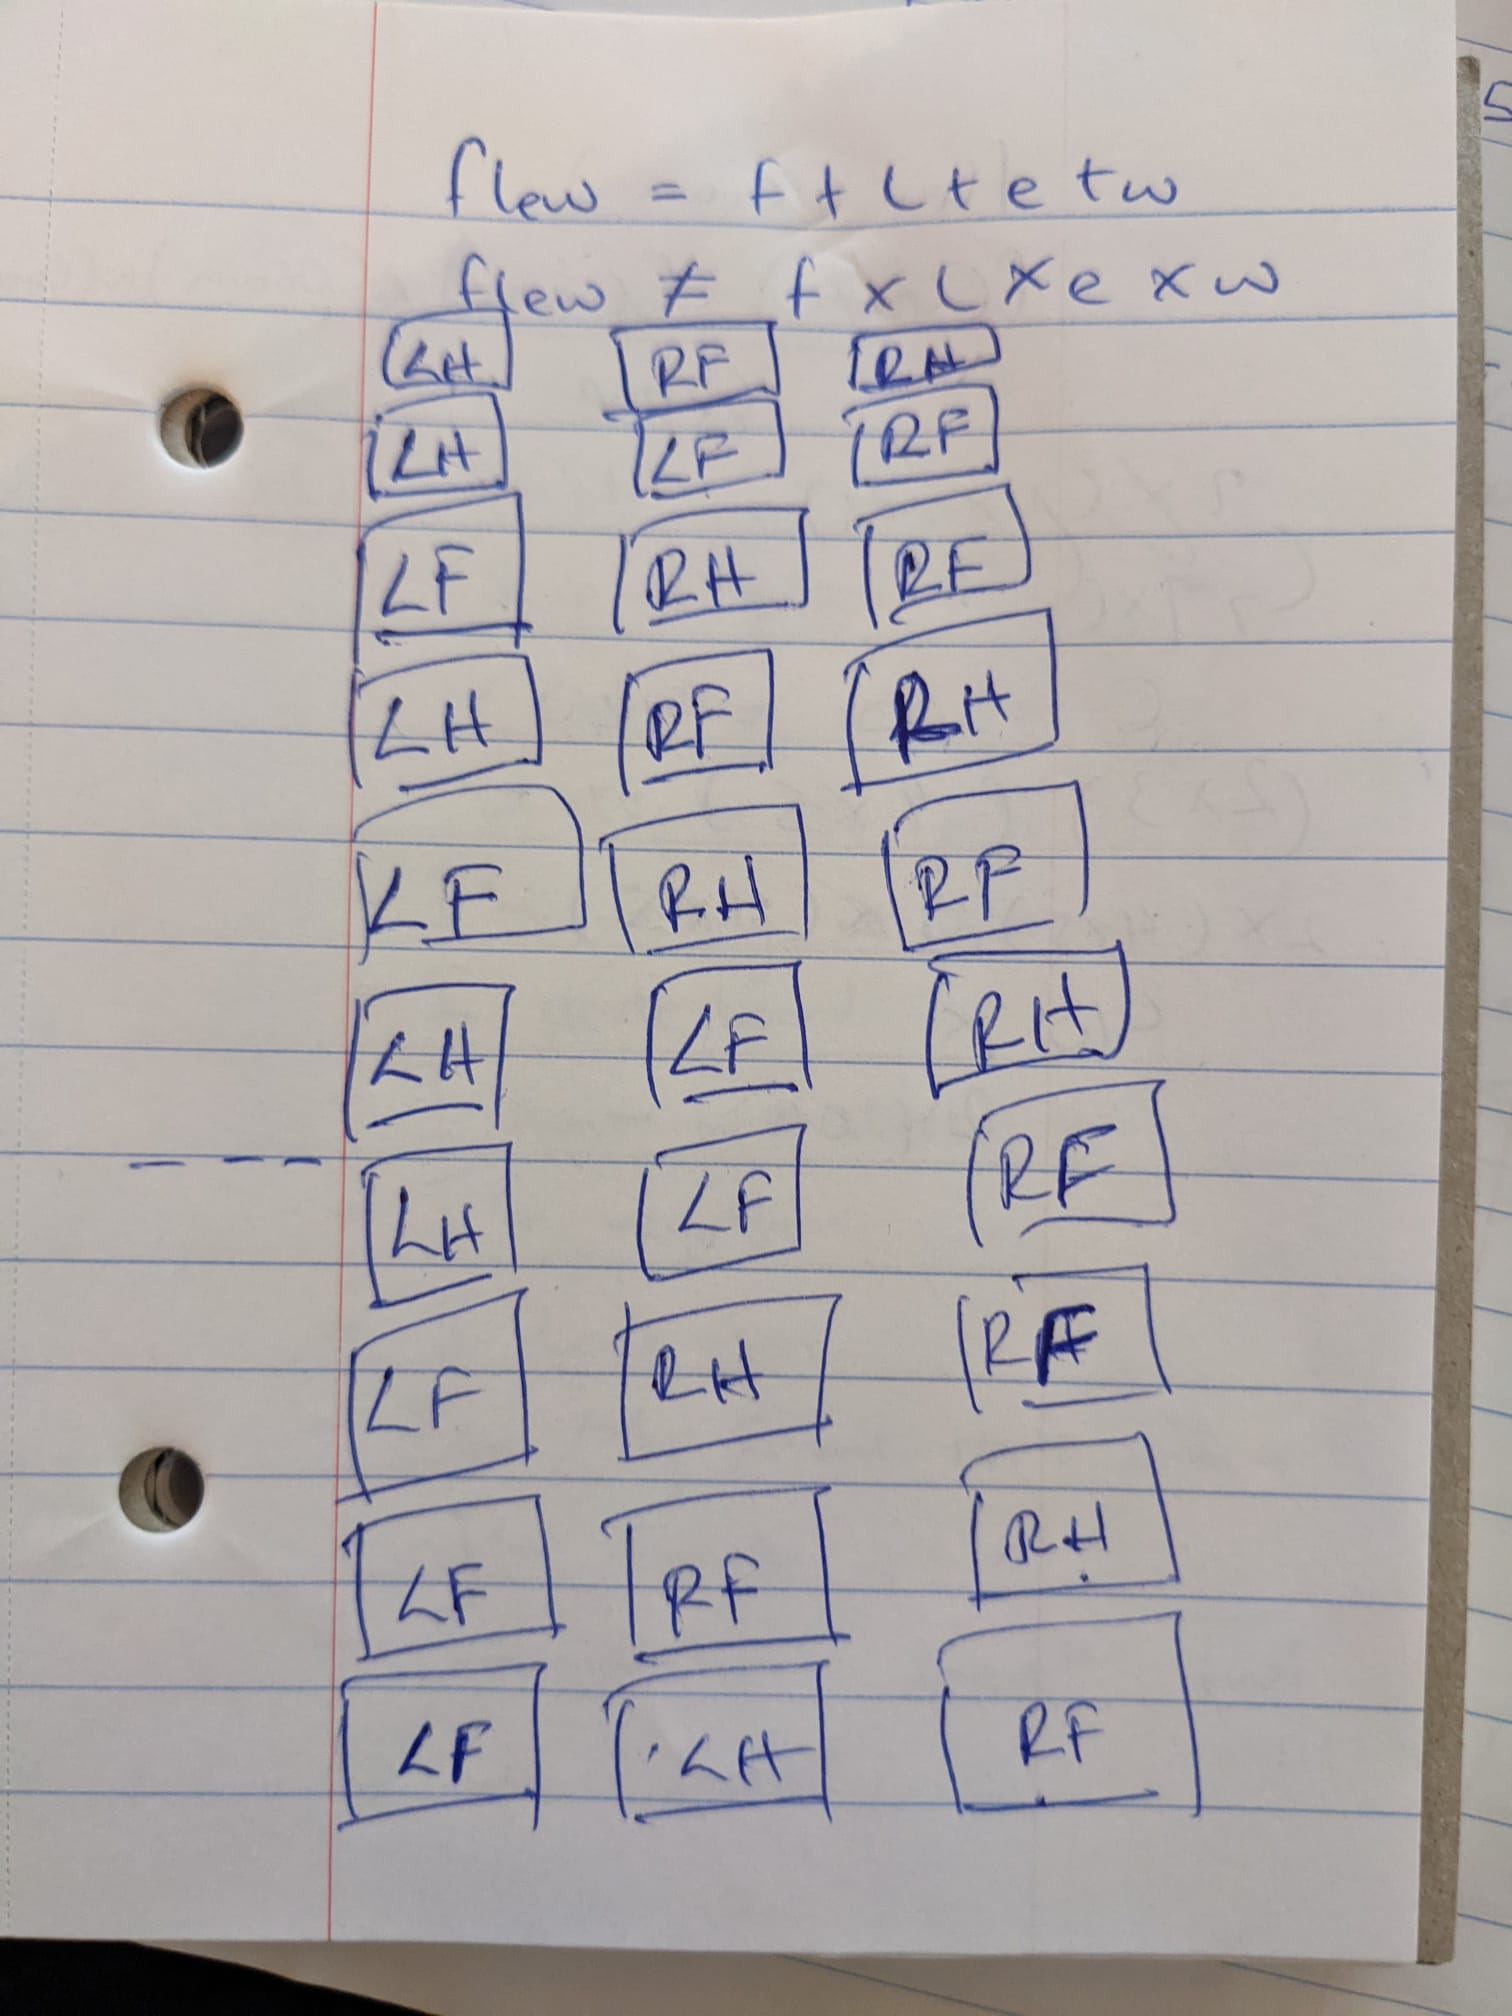 flew = f + l + e + w
flew ≠ f x l x e x w
LH RF RH
LH LF RF
LF RH RF
LH RF RH
LF RH RF
LH LF RH
LH LF RF
LF RH RF
LF RF RH
LF LH RF